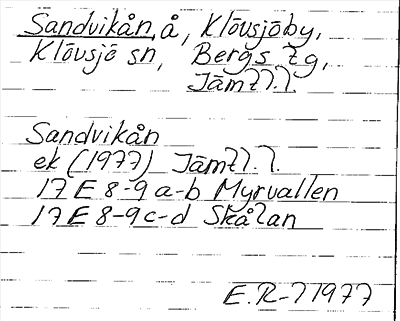 Sandvikån, å, Klövsjöby,
Klövsjö sn, Bergs tg,
Jämtl.l.
Sandvikån
ek (1977) Jämtl.l.
17 E 8-9 a-b Myrvallen
17 E 8-9 c-d Skålan
E.R-l 1977